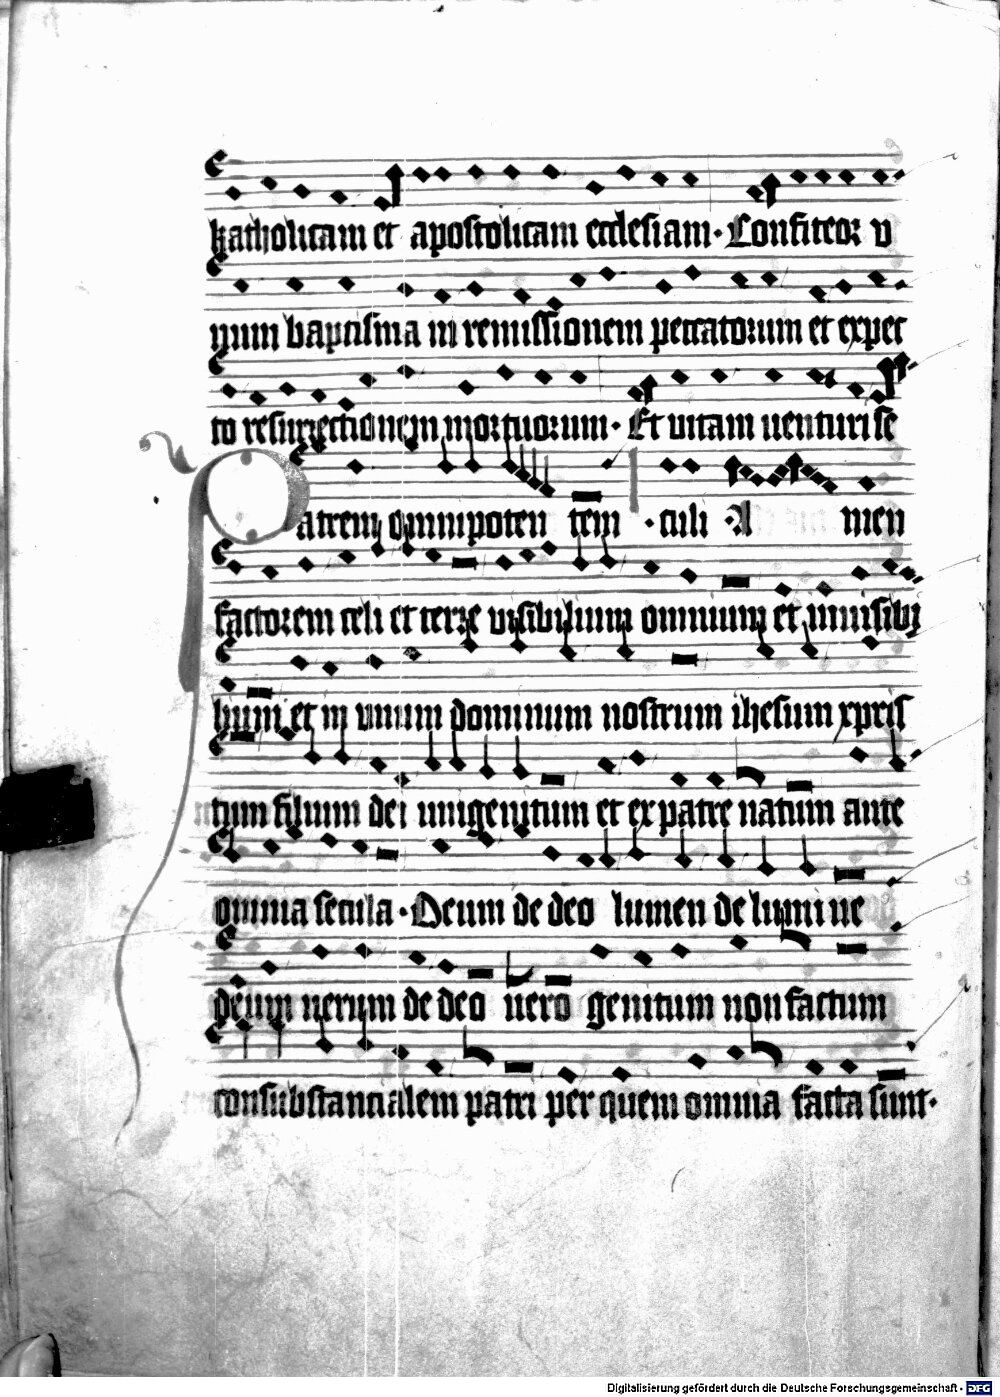 katholicam et apostolicam ecclesiam · Confiteor v
num baptisma in remissionem peccatorum et expec
to resurrectionem mortuorum · Et vitam uenturi se
Patrem omnipoten tem · culi · A men
factorem celi et terre visibilium omnium et inuisibi
lium et in vnum dominum nostrum ihesum xpris
tum filium dei unigenitum et ex patre natum ante
omnia secula · Deum de deo lumen de lumine
deum uerum de deo uero genitum non factum
consubstancialem patri per quem omnia facta sunt ·
Digitalisierung gefördert durch die Deutsche Forschungsgemeinschaft - DFG